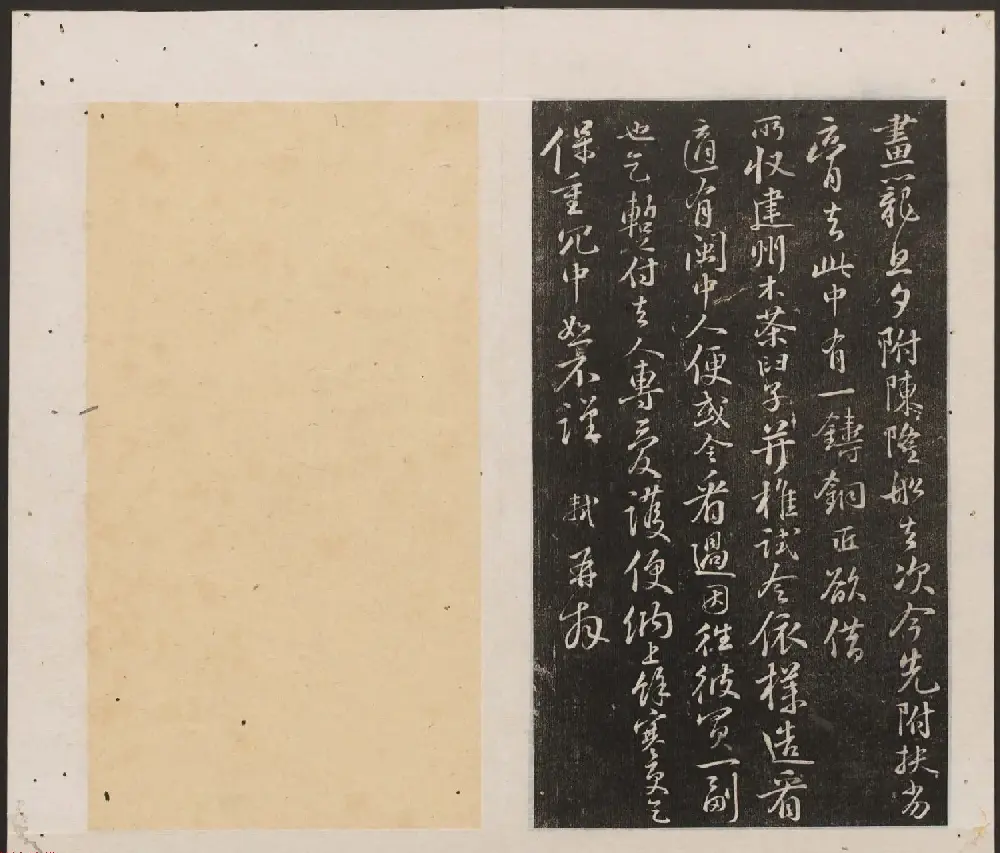 畫籠旦夕附陳隆船去次今先附扶劣
膏去此中有一鑄銅匠欲借
所收建州木茶臼子并椎試令依樣造看
適有閩中人便或令看過因往彼買一副
也乞暫付去人專愛護便納上餘寒更乞
保重冗中恕不謹 軾 再拜